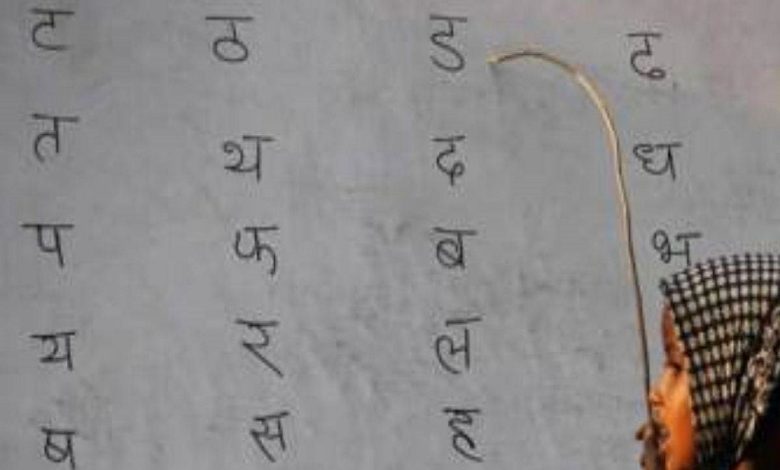 ट ठ ड ढ
त थ द ध
प फ ब भ
य ल
ष स ह